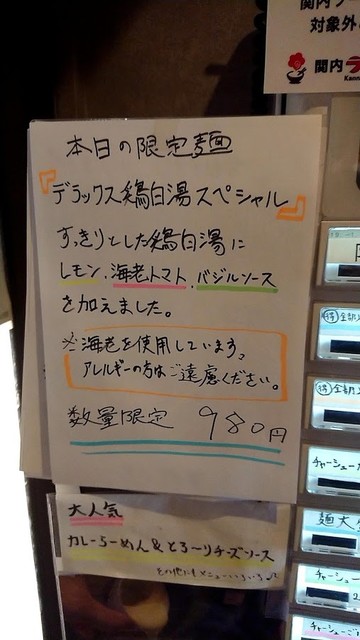 本日の限定麺
『デラックス鶏白湯スペシャル』
すっきりとした鶏白湯に
レモン、海老トマト、バジルソース
を加えました。
※海老を使用しています。
アレルギーの方はご遠慮ください。
数量限定 980円
大人気
カレーらーめん&とろ〜りチーズソース
その他にもメニューいろいろ
対象外
関内
チャーシュー
麺大
チャーシュー